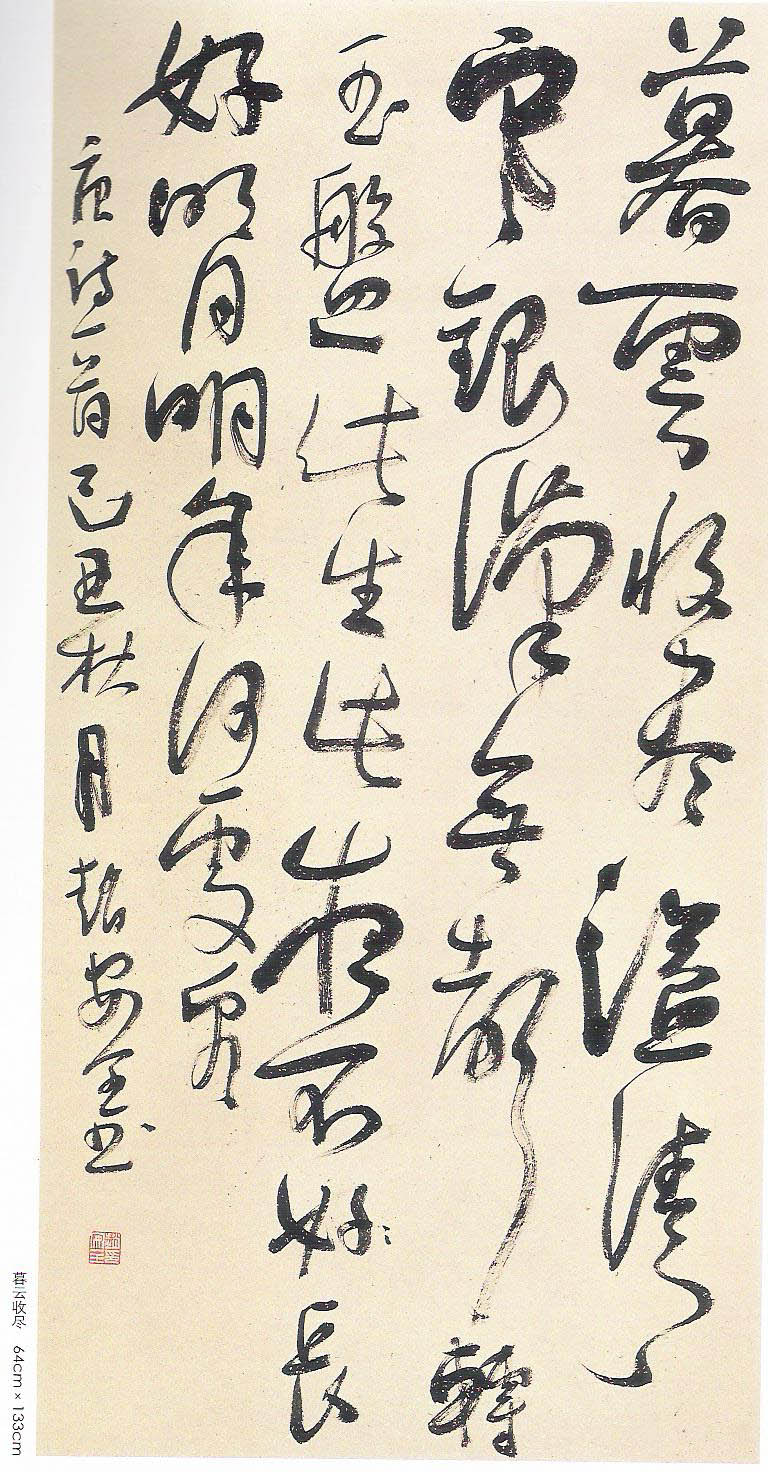 暮雲收尽溢清
寒銀漢無聲轉
玉盤此生此夜不好長
好明月明年何處看
唐詩一首己丑秋月 安全书
暮云收尽 64cm × 133cm